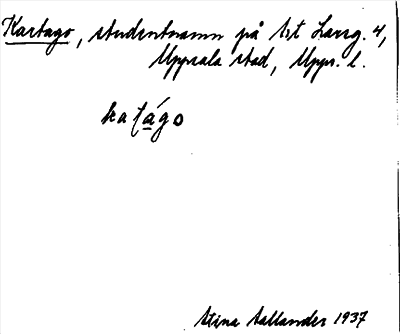 Kartago, studentnamn på S:t Larsg. 4,
Uppsala stad, Upps. l.
kaʈágo
Stina Sallander 1937